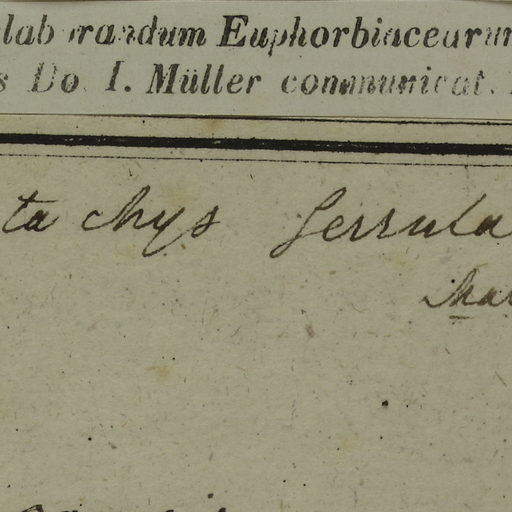 elaborandum Euphorbiacearum
s Do. I. Müller communicat.
ta chys Serrula
Mar